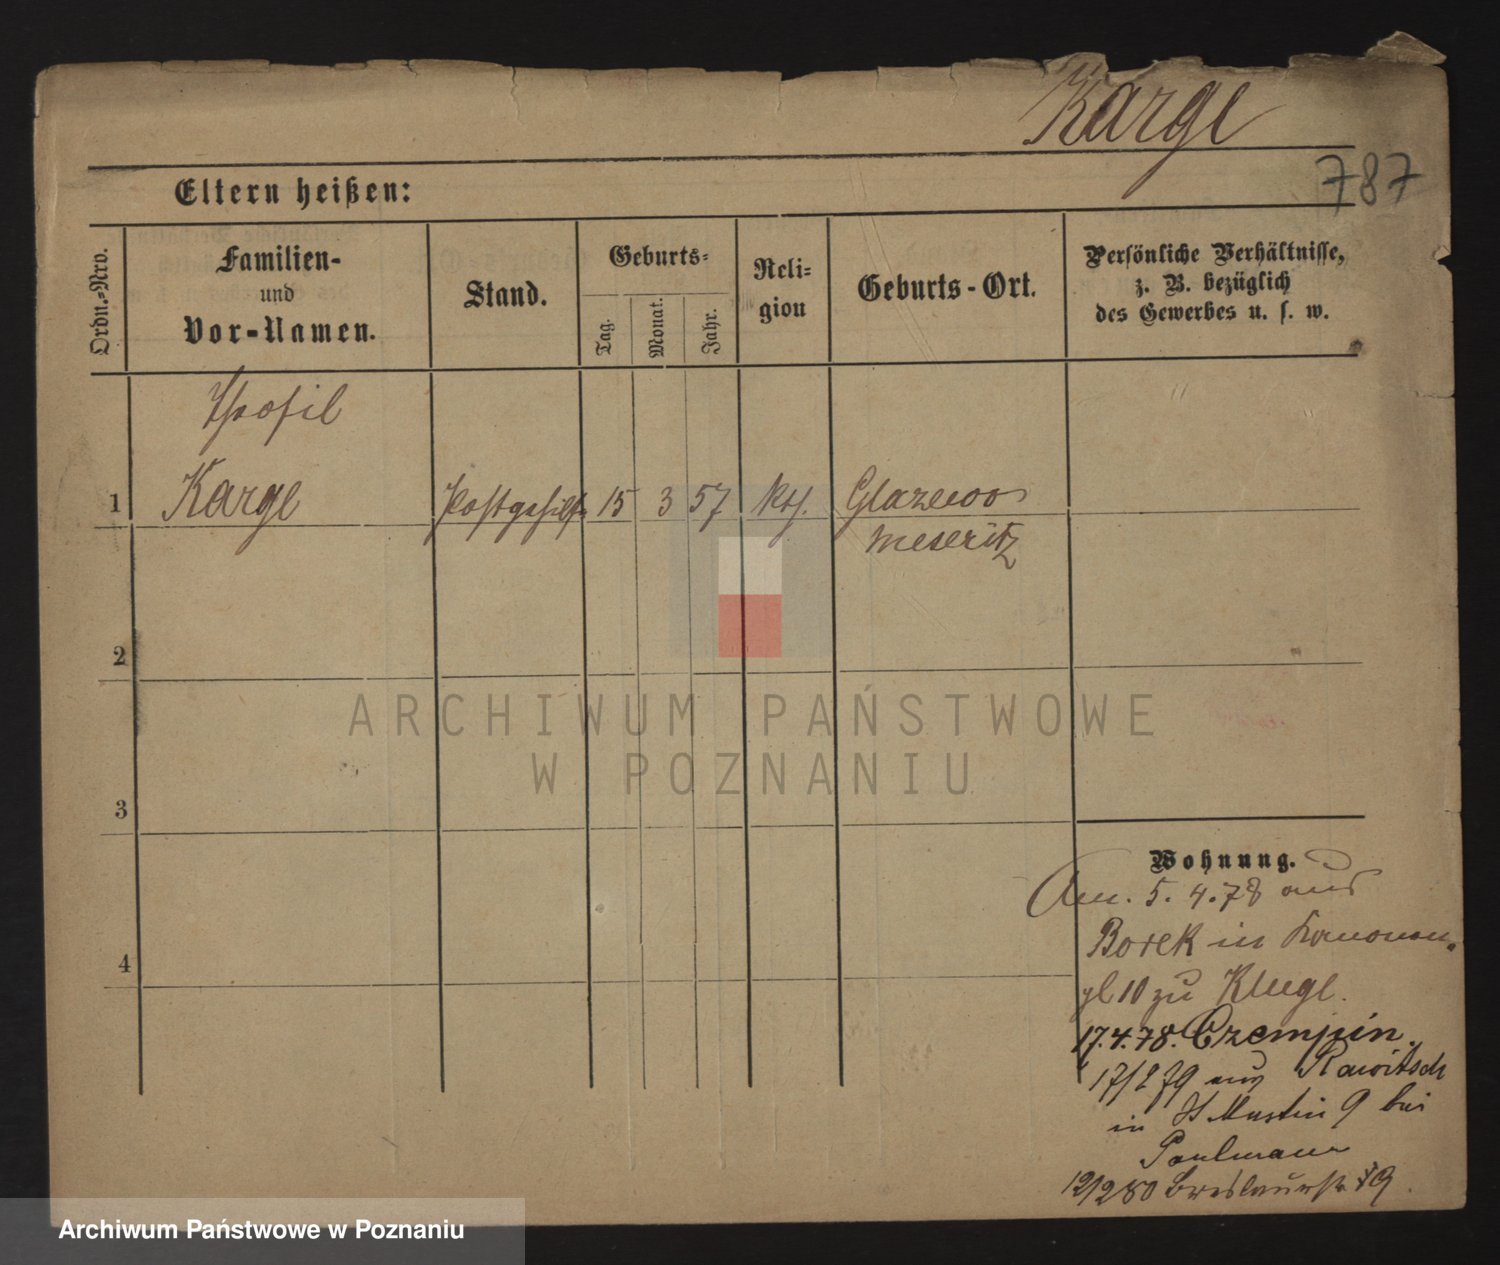 Karge
787
Eltern heißen:
Ordn.-Nro.
Familien-
und
Vor-Namen.
Stand.
Geburts-
Tag.
Monat.
Jahr.
Reli-
gion
Geburts-Ort.
Persönliche Verhältnisse,
z. B. bezüglich
des Gewerbes u. s. w.
Thofil
1 Karge Postgehilfe 15 3 57 kth. Glazewo
Meseritz
2
3
4
Wohnung.
Am. 5. 4. 78 aus
Borek in Kanonen-
pl 10 zu Kluge.
17. 4. 78. Czempin.
17/2 79 aus Rawitsch
in St Martin 9 bei
Paulmann
12/2 80 Breslauerstr 9.
ARCHIWUM PAŃSTWOWE
W POZNANIU
Archiwum Państwowe w Poznaniu